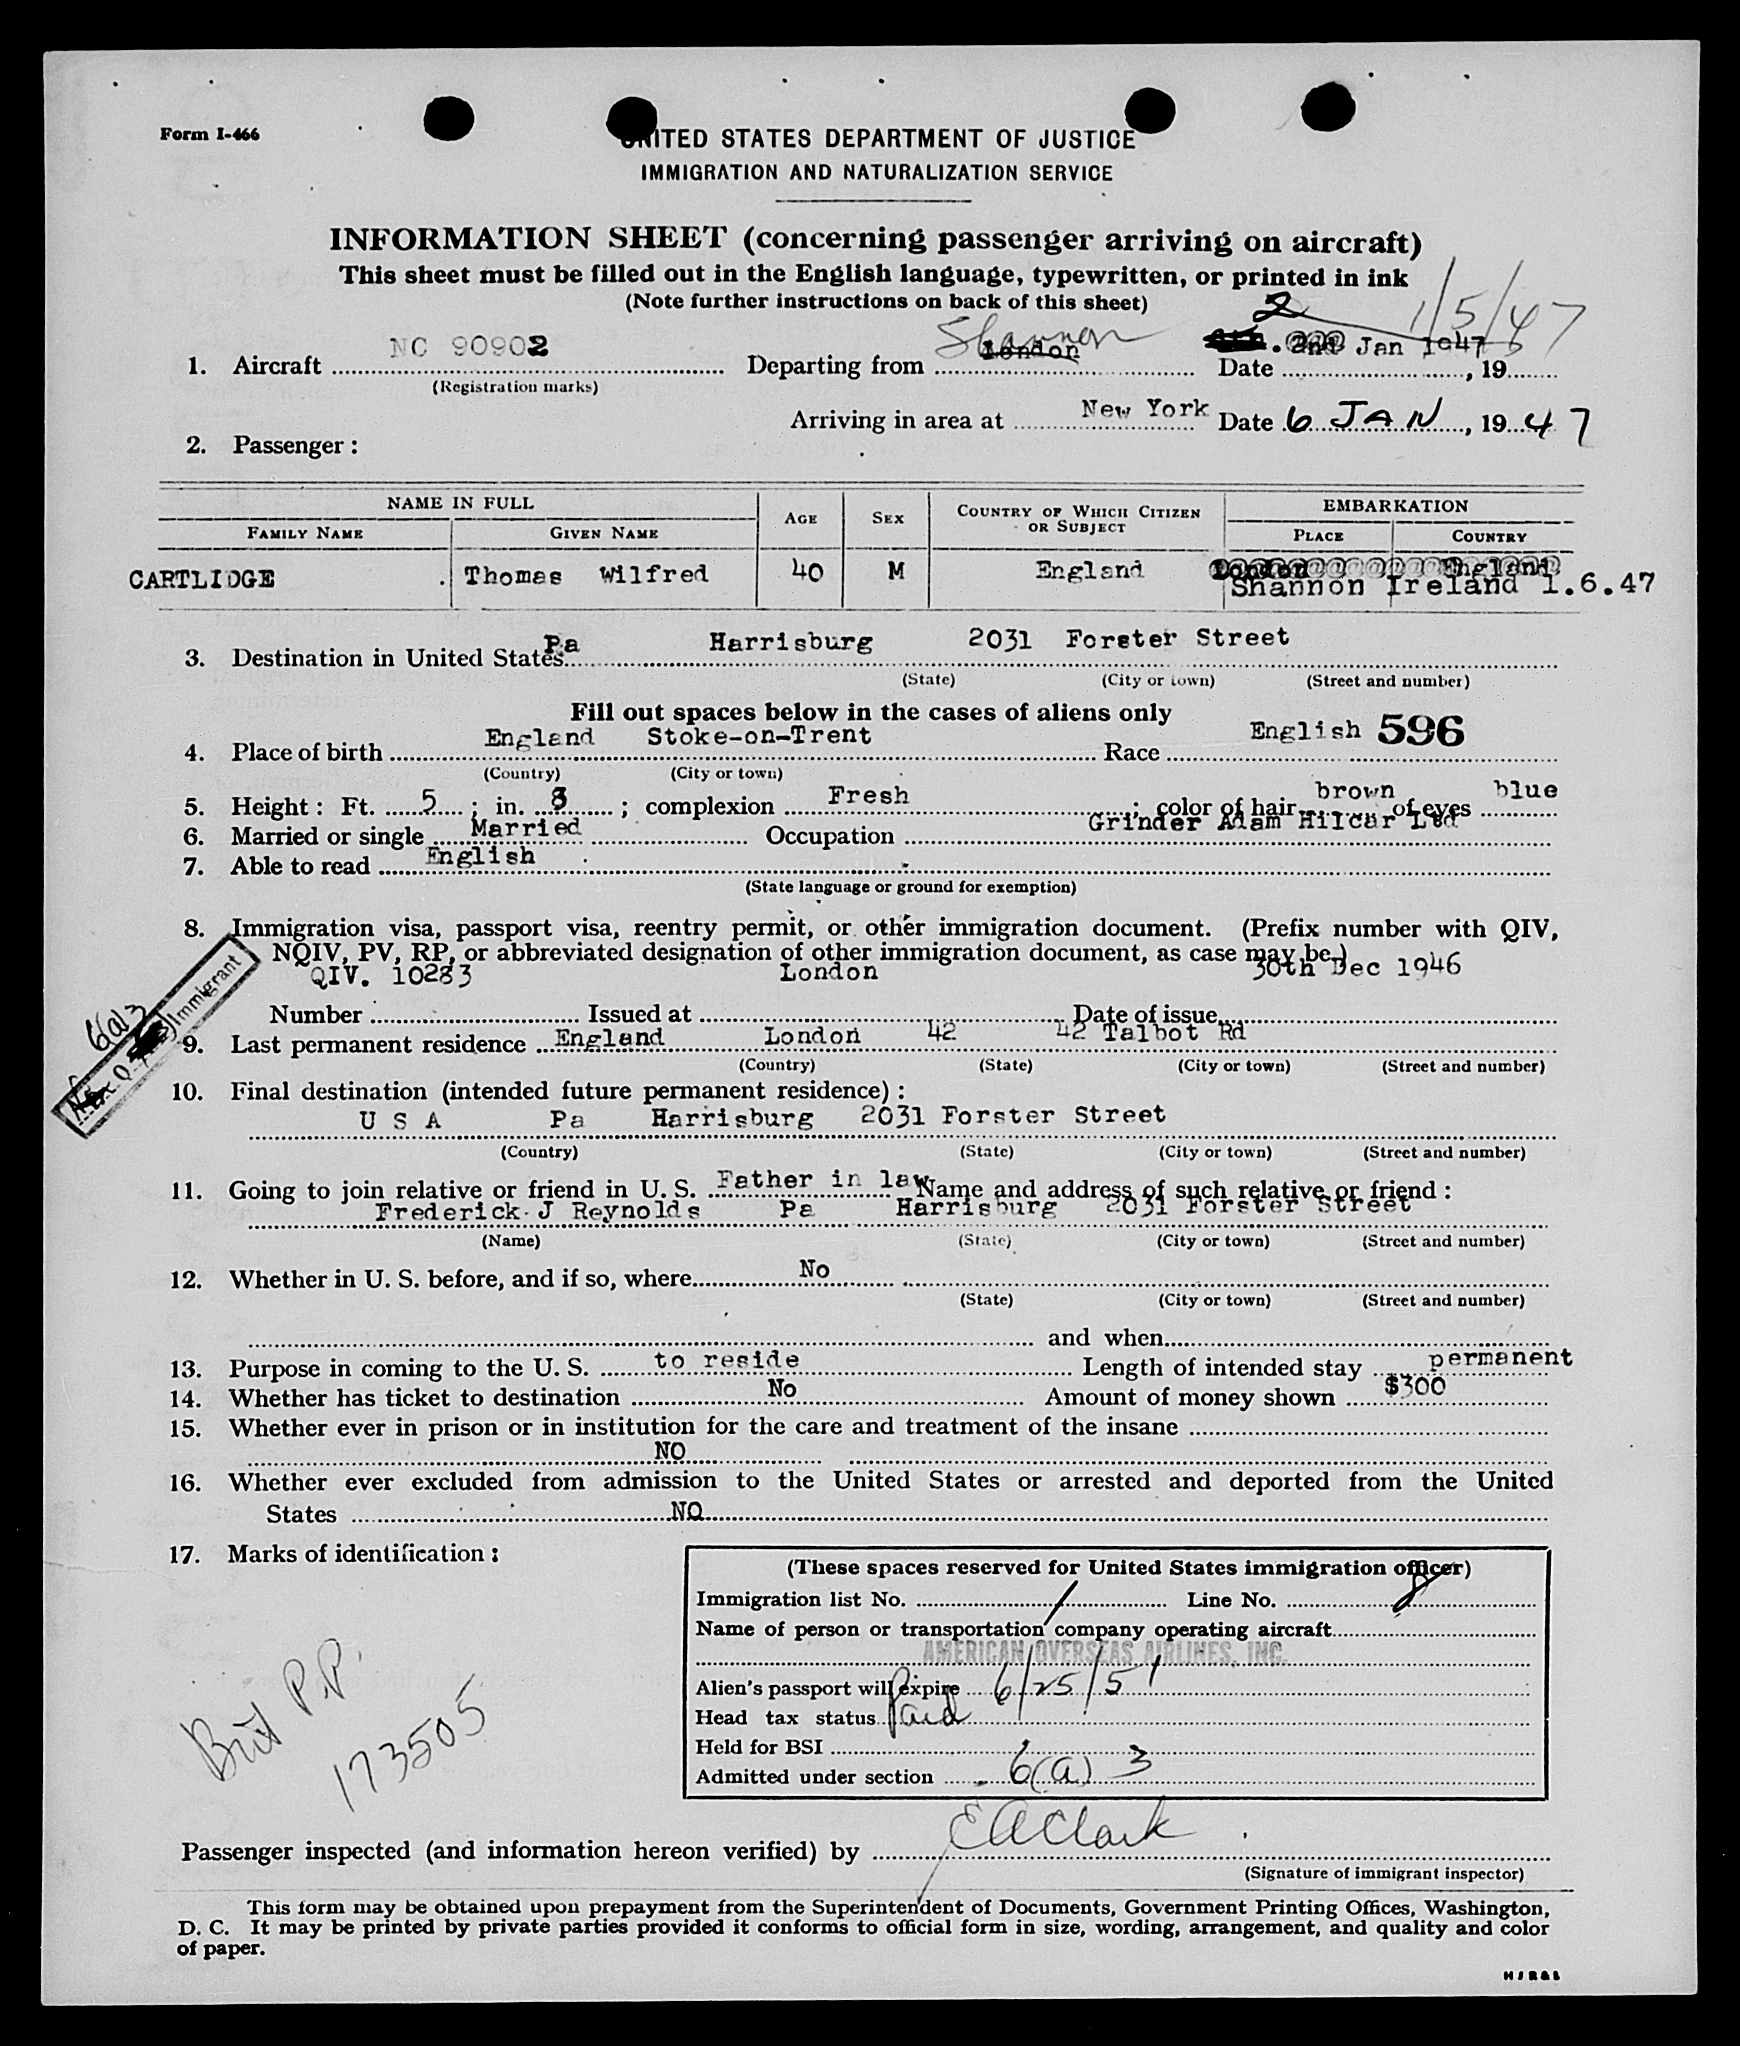 Form I-466
UNITED STATES DEPARTMENT OF JUSTICE
IMMIGRATION AND NATURALIZATION SERVICE
INFORMATION SHEET (concerning passenger arriving on aircraft)
This sheet must be filled out in the English language, typewritten, or printed in ink
(Note further instructions on back of this sheet)
1/5/47
1. Aircraft NC 90902 Departing from London Shannon Date 2nd Jan 1947, 19
(Registration marks)
Arriving in area at New York Date 6 JAN, 1947
2. Passenger :
NAME IN FULL AGE SEX COUNTRY OF WHICH CITIZEN OR SUBJECT EMBARKATION
FAMILY NAME GIVEN NAME PLACE COUNTRY
London England
CARTLIDGE Thomas Wilfred 40 M England Shannon Ireland 1.6.47
3. Destination in United States Pa Harrisburg 2031 Forster Street
(State) (City or town) (Street and number)
Fill out spaces below in the cases of aliens only
4. Place of birth England Stoke-on-Trent Race English 596
(Country) (City or town)
5. Height : Ft. 5 ; in. 8 ; complexion Fresh ; color of hair brown of eyes blue
6. Married or single Married Occupation Grinder Adam Hilcar Ltd
7. Able to read English
(State language or ground for exemption)
8. Immigration visa, passport visa, reentry permit, or other immigration document. (Prefix number with QIV,
NQIV, PV, RP, or abbreviated designation of other immigration document, as case may be.)
QIV. 10283 London 30th Dec 1946
Number Issued at Date of issue
6(a)3
Immigrant
9. Last permanent residence England London 42 42 Talbot Rd
(Country) (State) (City or town) (Street and number)
10. Final destination (intended future permanent residence) :
U S A Pa Harrisburg 2031 Forster Street
(Country) (State) (City or town) (Street and number)
11. Going to join relative or friend in U. S. Father in law Name and address of such relative or friend :
Frederick J Reynolds Pa Harrisburg 2031 Forster Street
(Name) (State) (City or town) (Street and number)
12. Whether in U. S. before, and if so, where No
(State) (City or town) (Street and number)
and when
13. Purpose in coming to the U. S. to reside Length of intended stay permanent
14. Whether has ticket to destination No Amount of money shown $300
15. Whether ever in prison or in institution for the care and treatment of the insane
NO
16. Whether ever excluded from admission to the United States or arrested and deported from the United
States NO
17. Marks of identification :
(These spaces reserved for United States immigration officer)
Immigration list No. 1 Line No. 8
Name of person or transportation company operating aircraft
AMERICAN OVERSEAS AIRLINES, INC.
Alien's passport will expire 6/25/51
Head tax status Paid
Held for BSI
Admitted under section 6(a) 3
Brit P.P.
173505
Passenger inspected (and information hereon verified) by E A Clark
(Signature of immigrant inspector)
This form may be obtained upon prepayment from the Superintendent of Documents, Government Printing Offices, Washington,
D. C. It may be printed by private parties provided it conforms to official form in size, wording, arrangement, and quality and color
of paper.